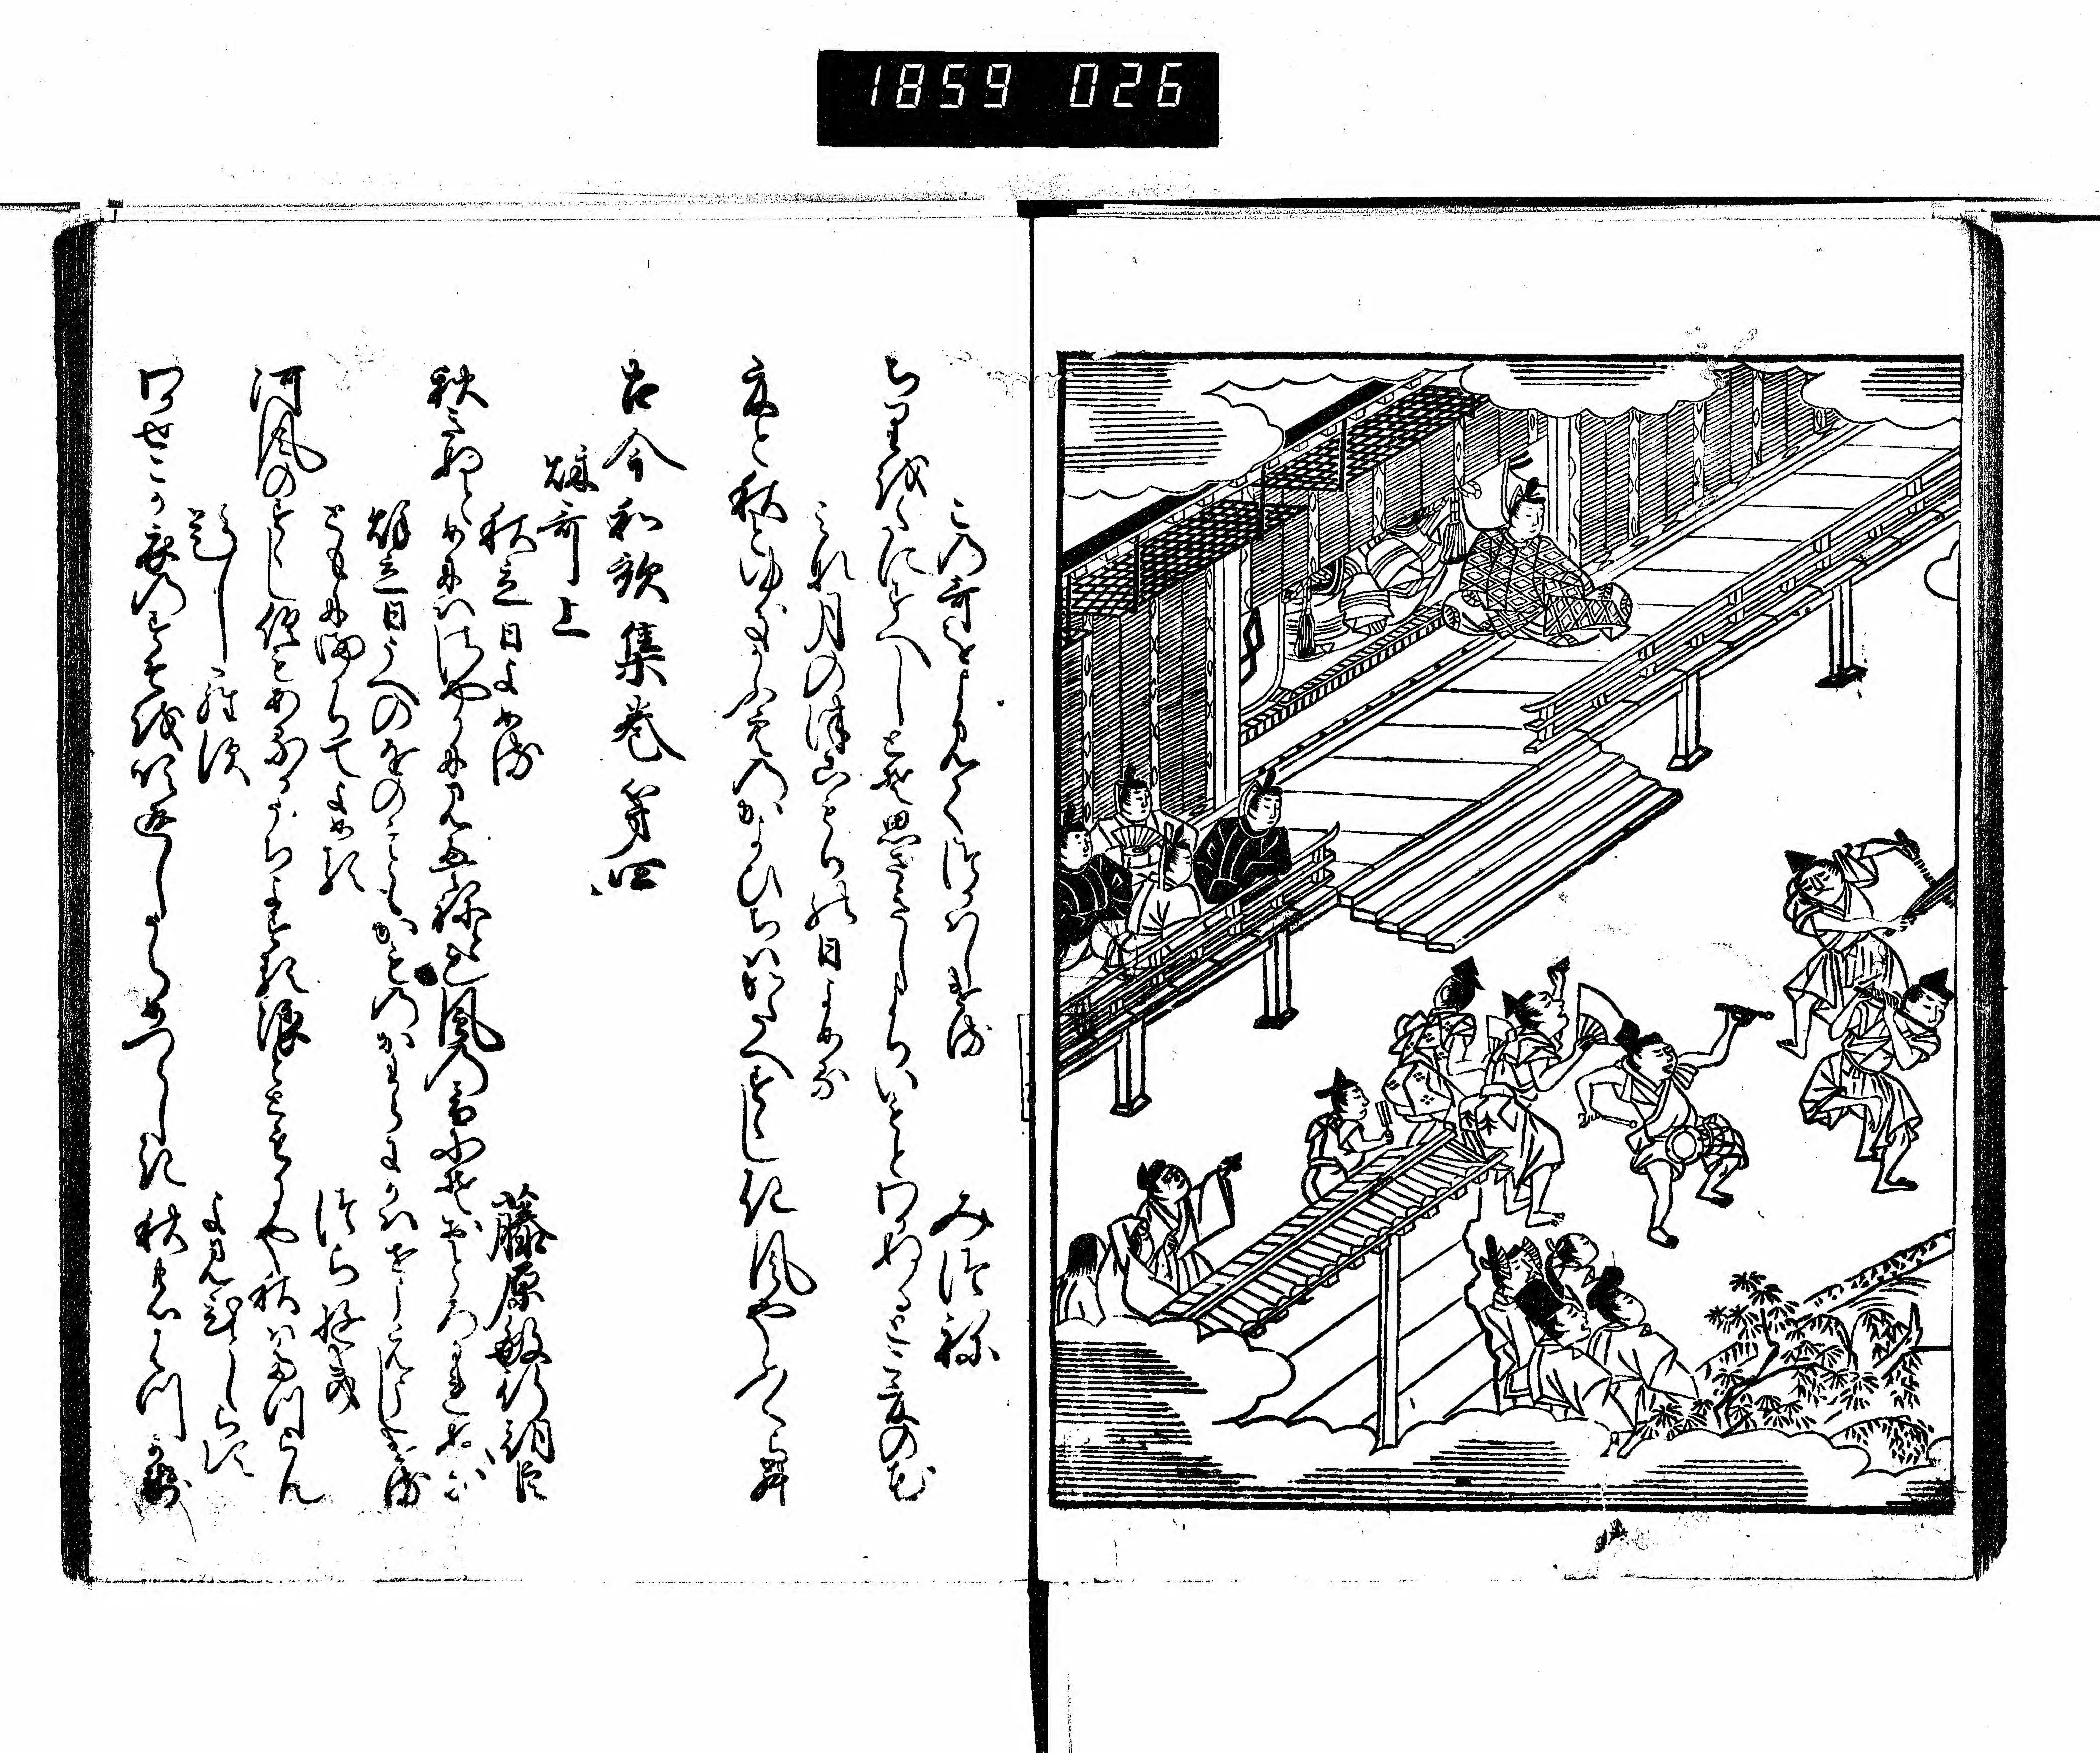 1859 026
この哥をよみてつかはしける
みつね
ちりをたにすへしとそ思さきしよりいもとわかぬるとこ夏の花
みな月のつこもりの日よめる
夏と秋とゆきかふ空のかよひちはかたへすゝしき風やふくらん
古今和歌集巻第四
秌哥上
秋立日よめる
藤原敏行朝臣
秋きぬとめにはさやかに見えねとも風の音にそおとろかれぬる
秌立日うへのをのこともかものかはらにかはせうえうしける
ともにまかりてよめる
つらゆき
河風のすゝしくもあるかうちよする浪とともにや秋は立らん
題しらす
よみ人しらす
わかせこか衣のすそを吹返しうらめつらしき秋のはつ風